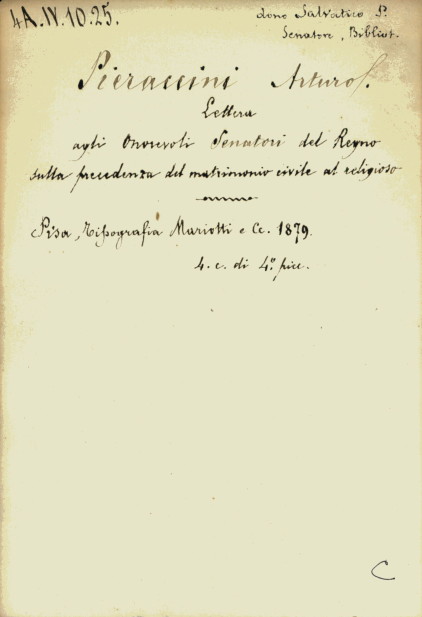 4A.IV.10.25.
dono Salvatico P.
Senatore, Bibliot.
Pieraccini Arturo f.
Lettera
agli Onorevoli Senatori del Regno
sulla precedenza del matrimonio civile al religioso
Pisa, Tipografia Mariotti e Cc. 1879.
4. c. di 4.º picc.
C